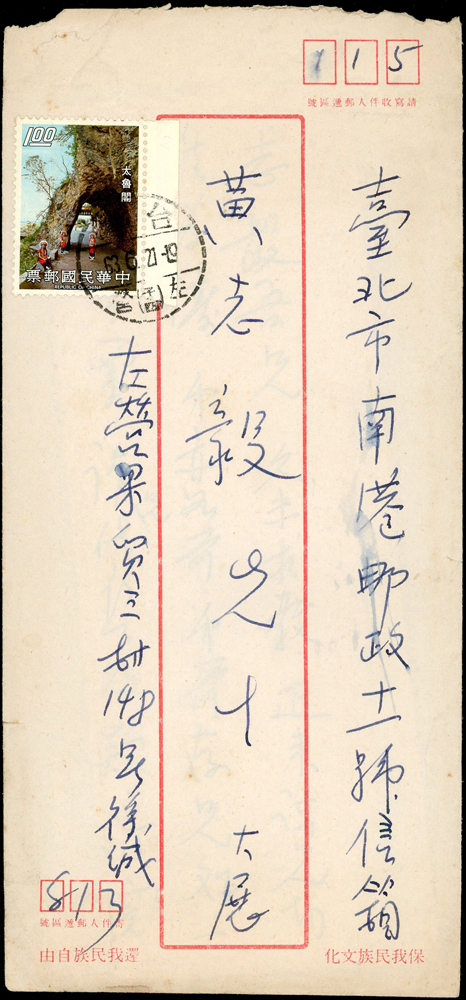 115
請寫收件人郵遞區號
臺北市南港郵政十一號信箱
黃志毅先生 大展
1.00
太魯閣
中華民國郵票
REPUBLIC OF CHINA
台
左營
左營果貿三村148号徐缄
813
寄件人郵遞區號
保我民族文化
還我民族自由